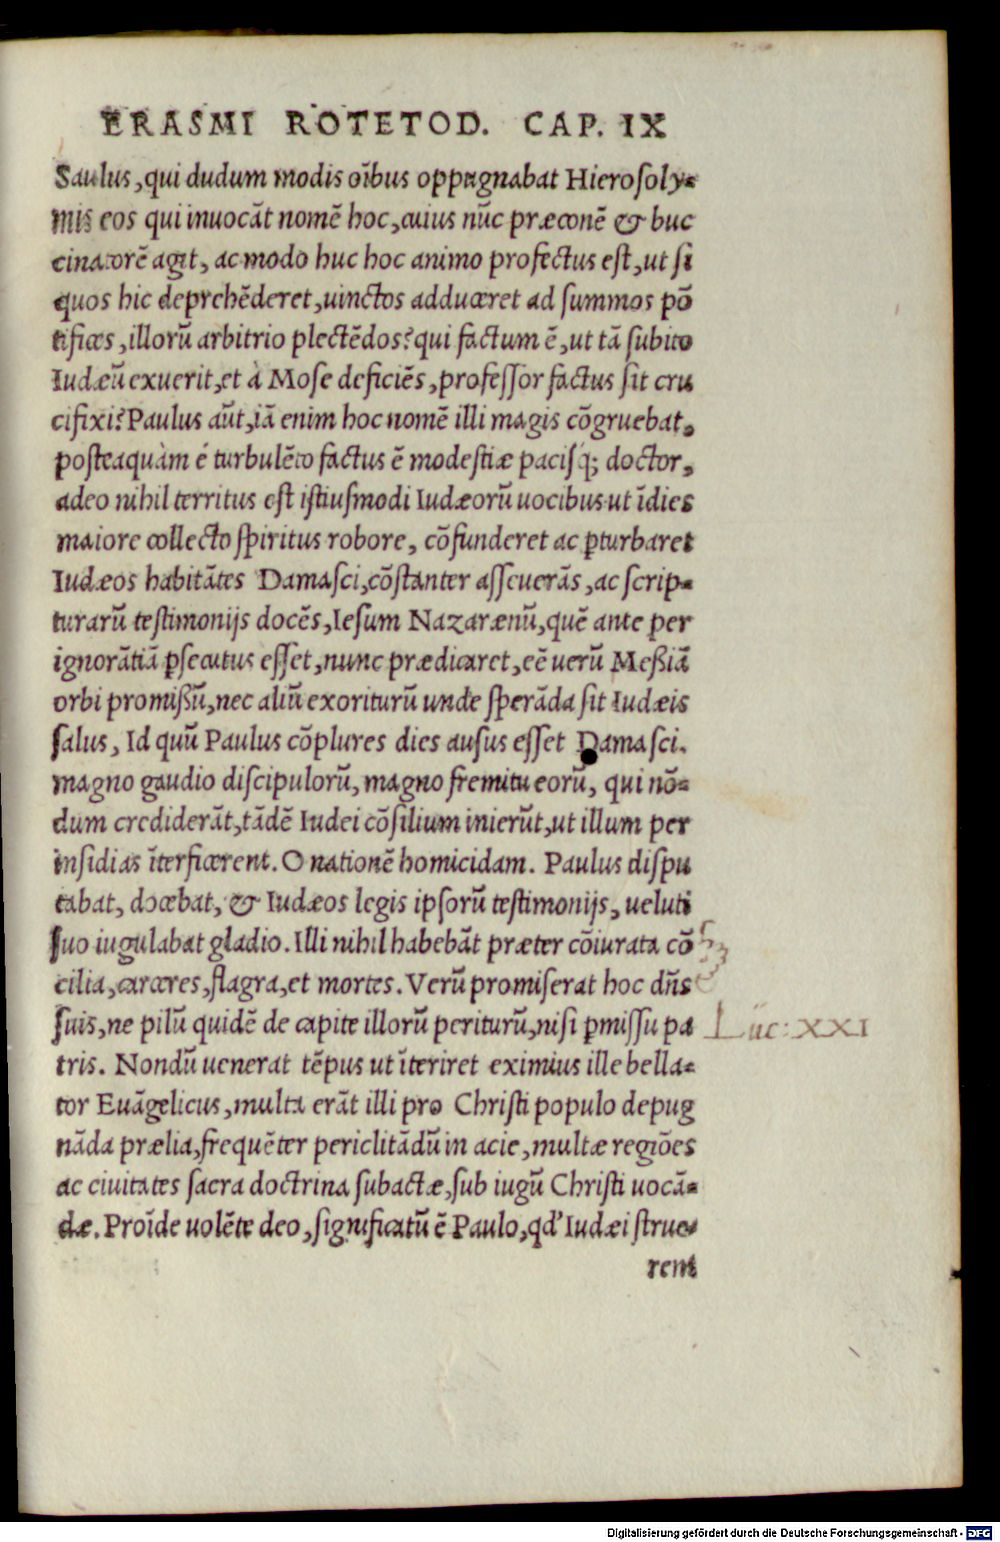 ERASMI ROTETOD. CAP. IX
Saulus, qui dudum modis oĩbus oppugnabat Hierosoly-
mis eos qui inuocãt nomẽ hoc, cuius nũc præconẽ & buc
cinatorẽ agit, ac modo huc hoc animo profectus est, ut si
quos hic deprehẽderet, uinctos adduceret ad summos põ
tifices, illorũ arbitrio plectẽdos? qui factum ẽ, ut tã subito
Iudæũ exuerit, et à Mose deficiẽs, professor factus sit cru
cifixi? Paulus aũt, iã enim hoc nomẽ illi magis cõgruebat,
posteaquàm é turbulẽto factus ẽ modestiæ pacisq́; doctor,
adeo nihil territus est istiusmodi Iudæorũ uocibus ut ĩdies
maiore collecto spiritus robore, cõfunderet ac ꝑturbaret
Iudæos habitãtes Damasci, cõstanter asseuerãs, ac scrip-
turarũ testimonijs docẽs, Iesum Nazarænũ, quẽ ante per
ignorãtiã ꝑsecutus esset, nunc prædicaret, eẽ uerũ Meßiã
orbi promißũ, nec aliũ exoriturũ unde sperãda sit Iudæis
salus, Id quũ Paulus cõplures dies ausus esset Damasci,
magno gaudio discipulorũ, magno fremitu eorũ, qui nõ-
dum crediderãt, tãdẽ Iudei cõsilium inierũt, ut illum per
insidias ĩterficerent. O nationẽ homicidam. Paulus dispu
tabat, docebat, & Iudæos legis ipsorũ testimonijs, ueluti
suo iugulabat gladio. Illi nihil habebãt præter cõiurata cõ
cilia, carceres, flagra, et mortes. Verũ promiserat hoc dñs
suis, ne pilũ quidẽ de capite illorũ periturũ, nisi ꝑmissu pa
Luc: XXI
tris. Nondũ uenerat tẽpus ut ĩteriret eximius ille bella-
tor Euãgelicus, multa erãt illi pro Christi populo depug
nãda prælia, frequẽter periclitãdũ in acie, multæ regiões
ac ciuitates sacra doctrina subactæ, sub iugũ Christi uocã-
dæ. Proĩde uolẽte deo, significatũ ẽ Paulo, qd' Iudæi strue-
rent
Digitalisierung gefördert durch die Deutsche Forschungsgemeinschaft - DFG